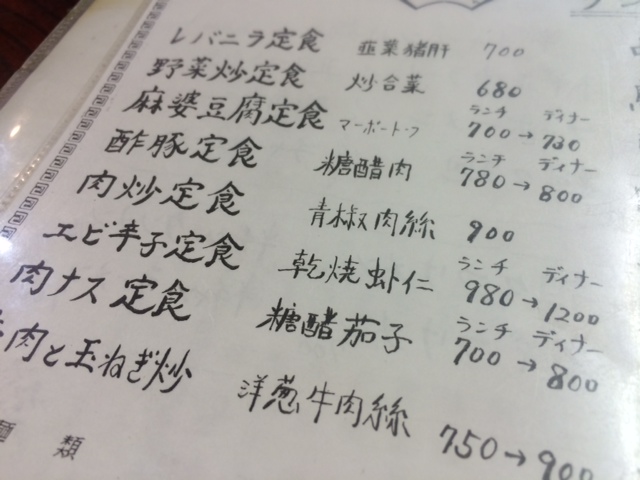 レバニラ定食 韮菜猪肝 700
野菜炒定食 炒合菜 680
ランチ ディナー
麻婆豆腐定食 マーボートーフ 700→730
ランチ ディナー
酢豚定食 糖醋肉 780→800
肉炒定食 青椒肉絲 900
ランチ ディナー
エビ辛子定食 乾焼虾仁 980→1200
ランチ ディナー
肉ナス定食 糖醋茄子 700→800
牛肉と玉ねぎ炒 洋葱牛肉絲 750→900
麺類